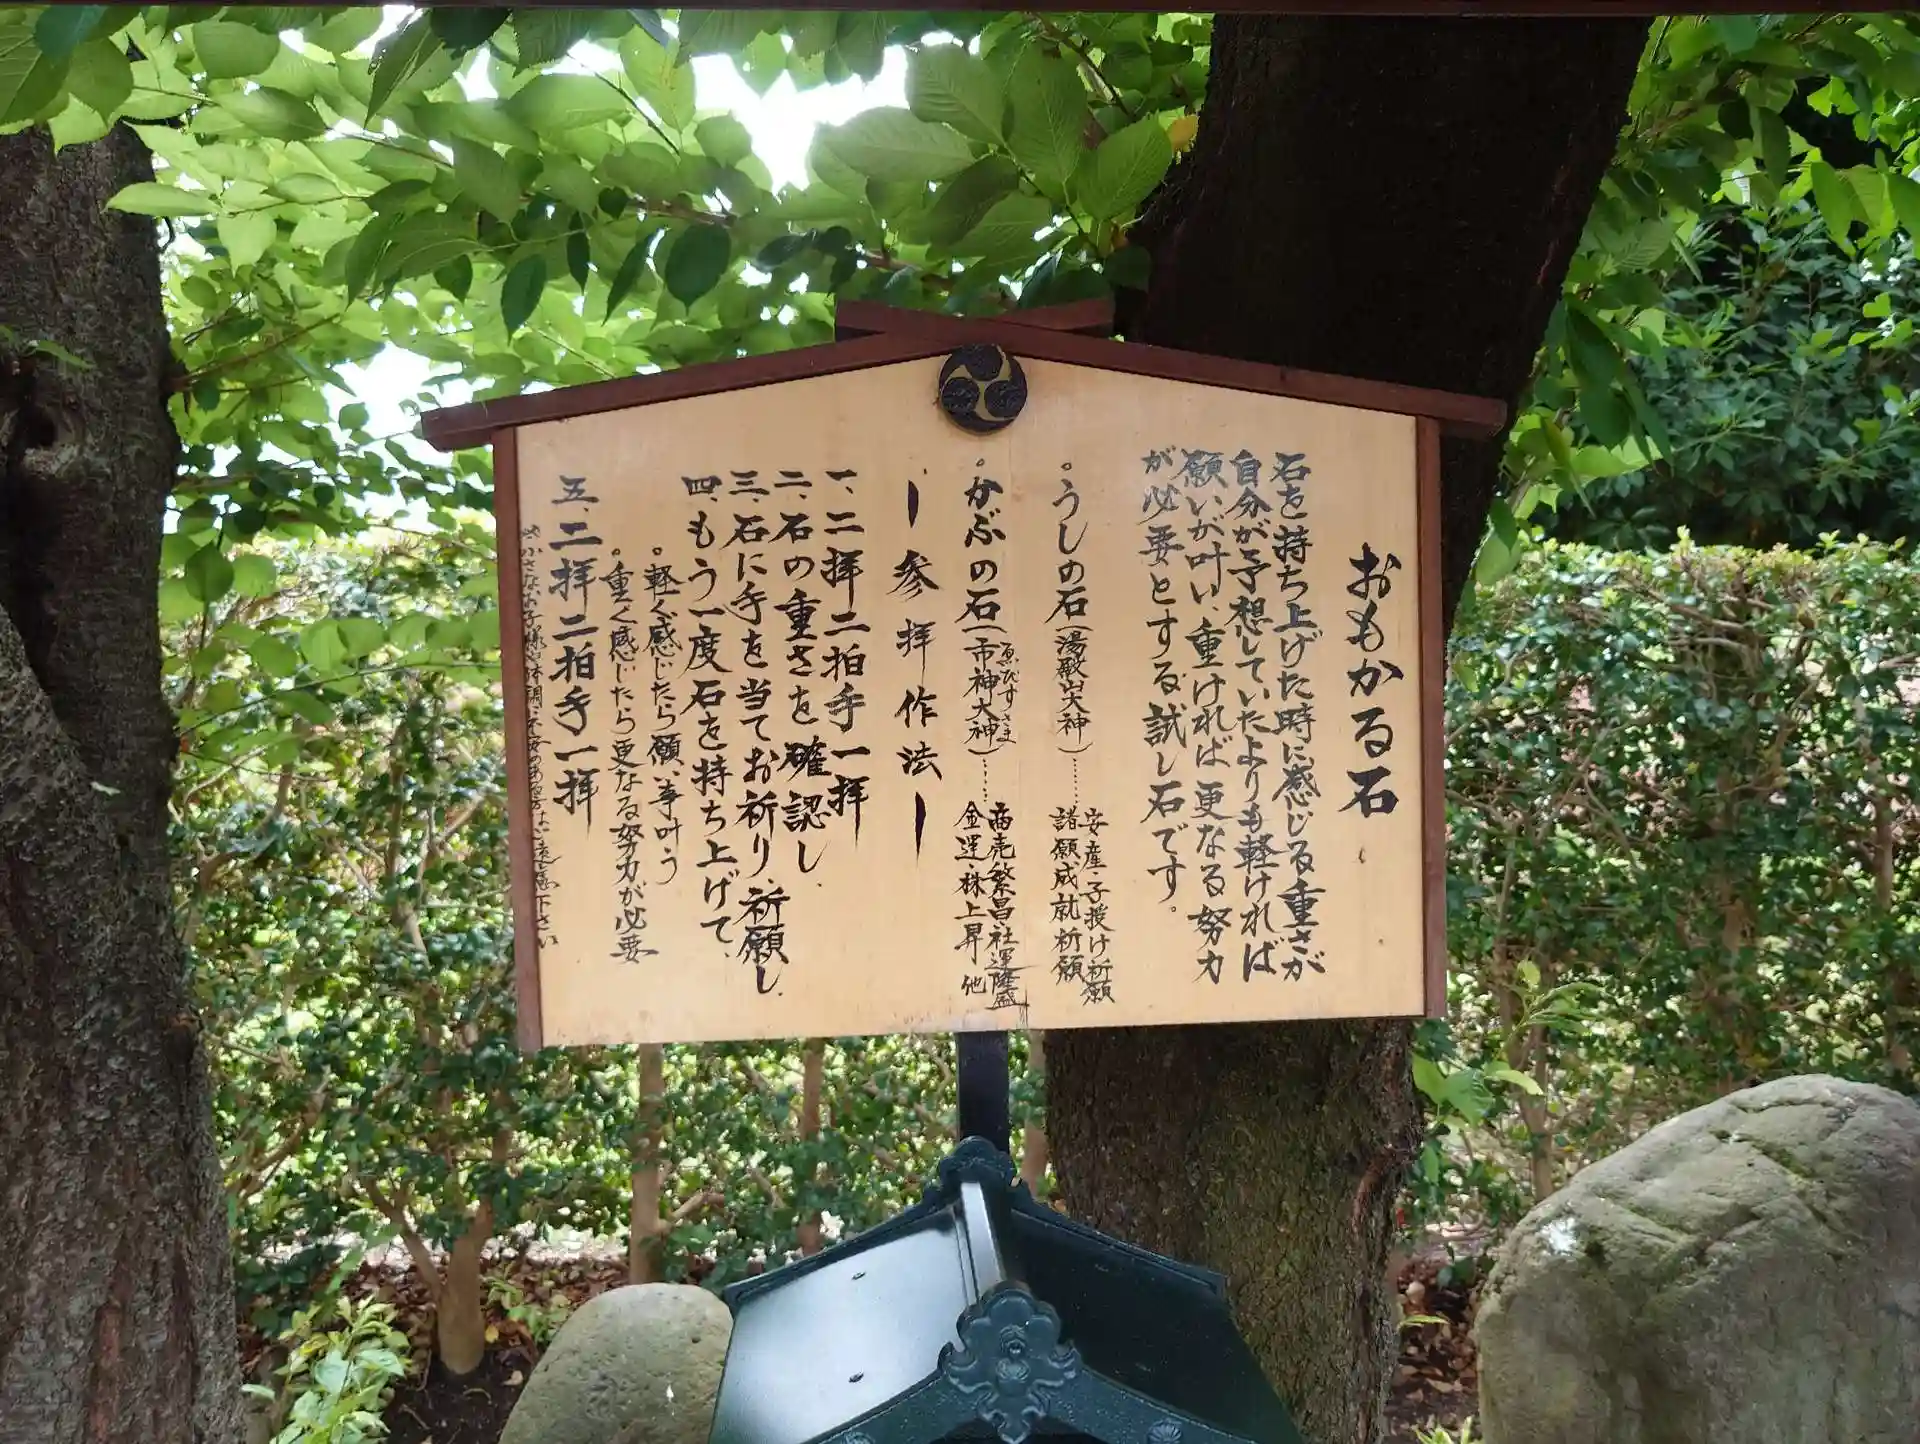 おもかる石
石を持ち上げた時に感じる重さが
自分が予想していたよりも軽ければ
願いが叶い、重ければ更なる努力
が必要とする試し石です。
。うしの石(湯殿山大神)……安産・子授け祈願
諸願成就祈願
。かぶの石(市神大神)……商売繁昌社運隆盛
ゑびすさま
金運・株上昇 他
ー参拝作法ー
一、二拝二拍手一拝
二、石の重さを確認し、
三、石に手を当てお祈り、祈願し、
四、もう一度石を持ち上げて、
。軽く感じたら願い事叶う
。重く感じたら更なる努力が必要
五、二拝二拍手一拝